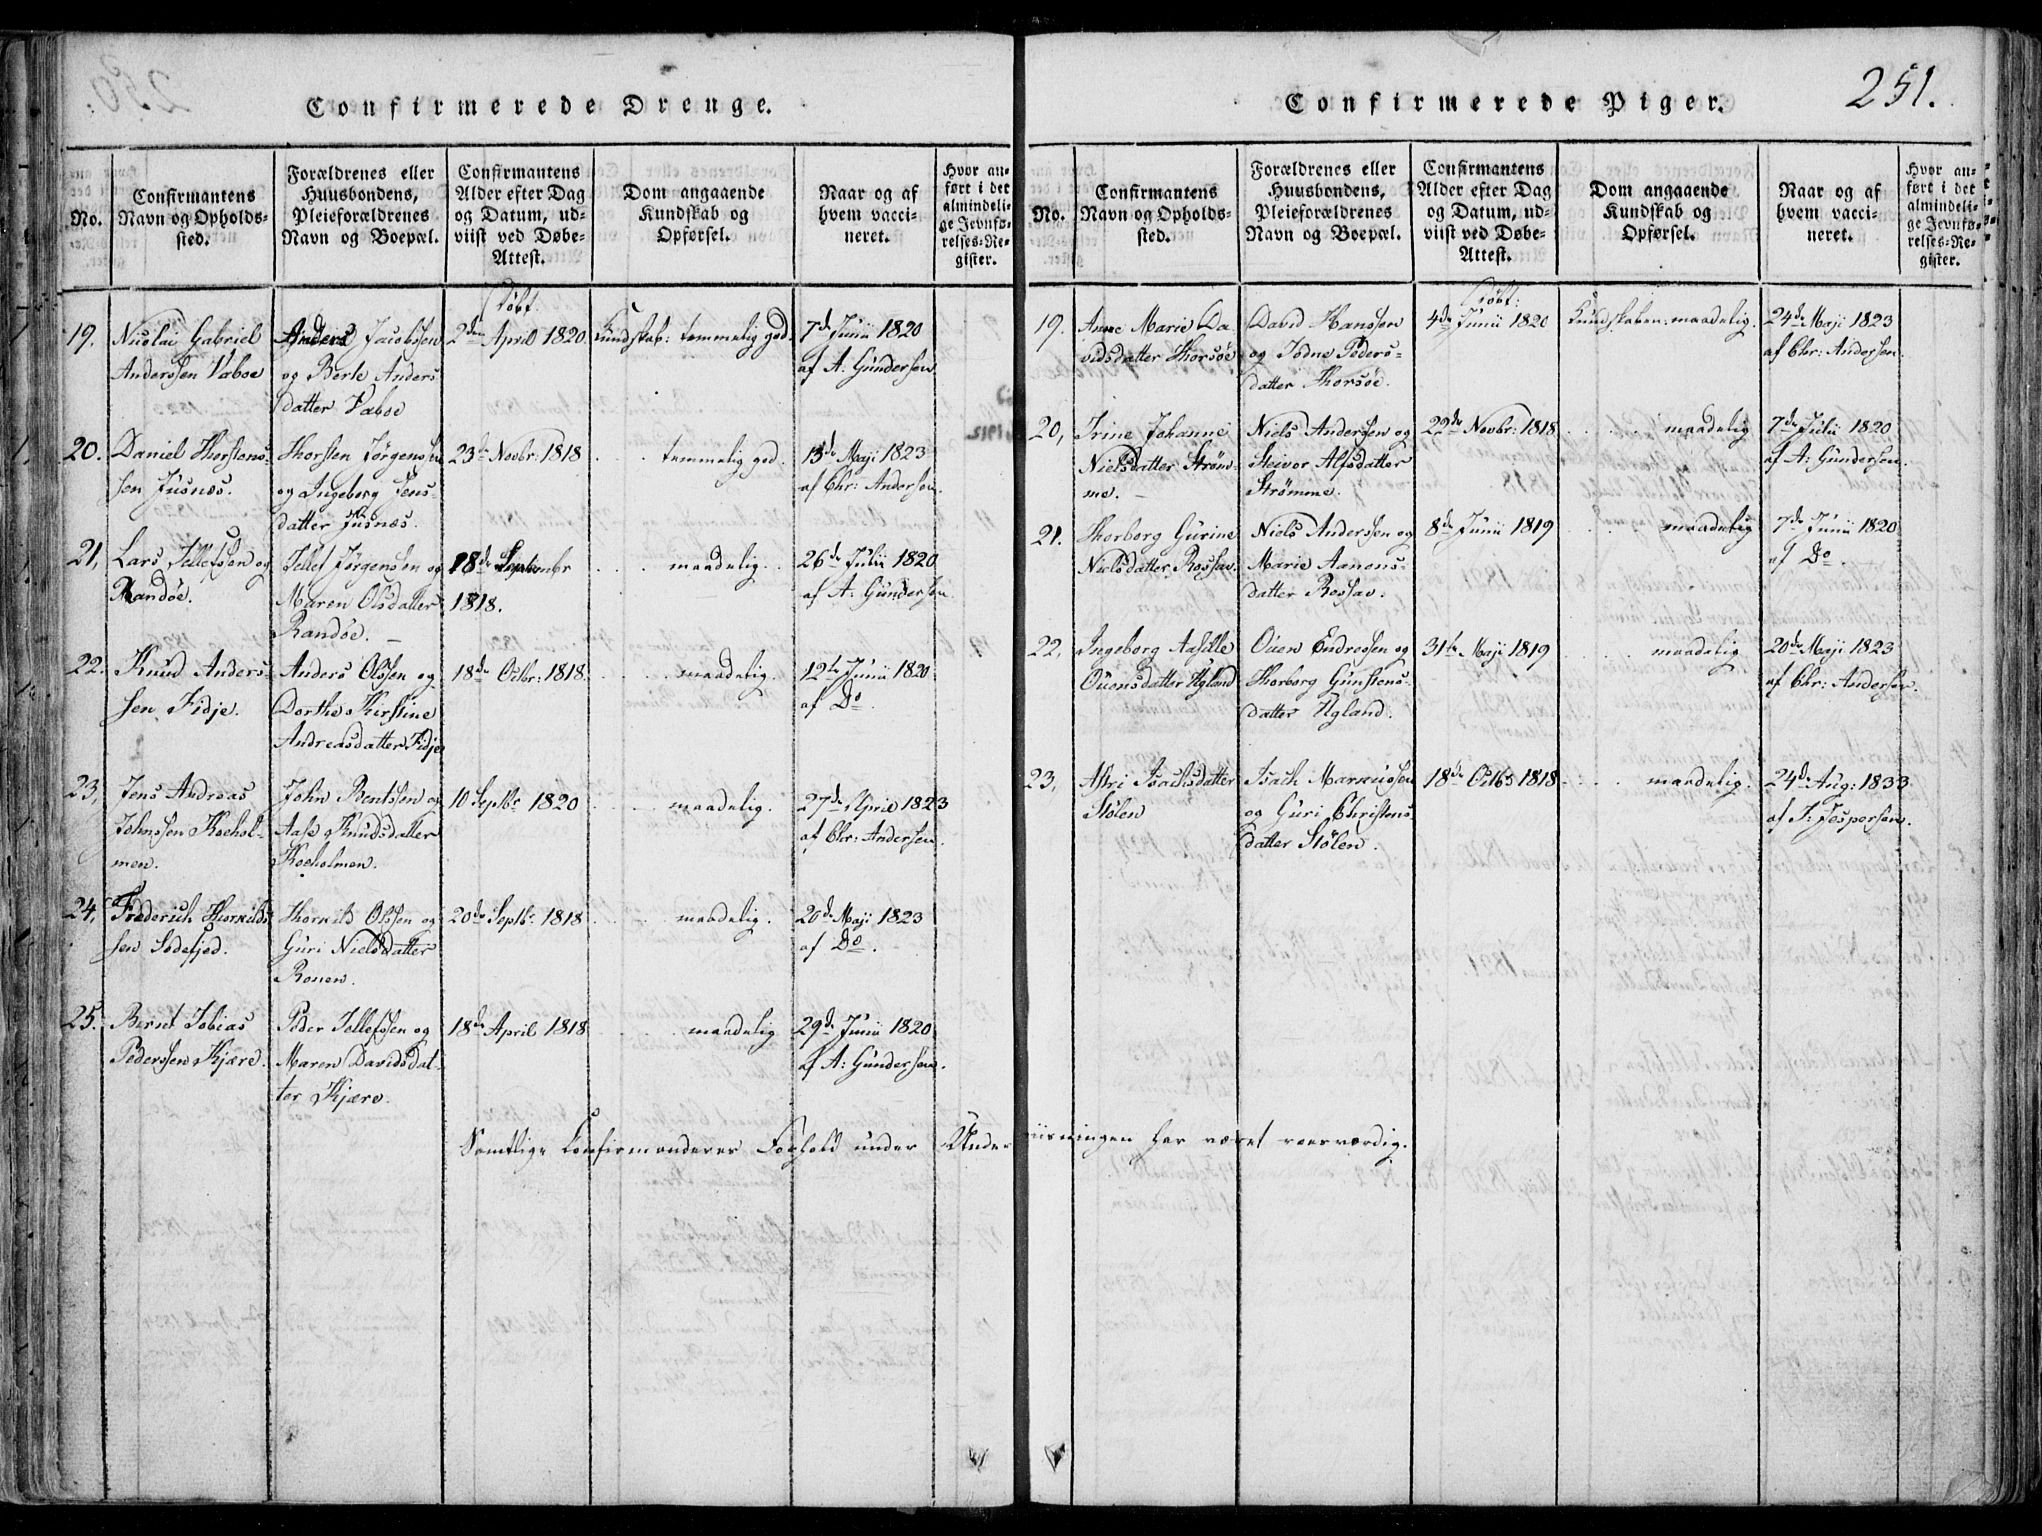 Confirmerede Drenge.
No.
Confirmantens
Navn og Opholds-
sted.
Forældrenes eller
Huusbondens,
Pleieforældrenes
Navn og Boepæl.
Confirmantens
Alder efter Dag
og Datum, ud-
viist ved Døbe-
Attest.
Dom angaaende
Kundskab og
Opførsel.
Naar og af
hvem vacci-
neret.
Hvor an-
ført i det
almindeli-
ge Jevnfø-
relses-Re-
gister.
19.
Nicolai Gabriel
Anderssen Vaboe
Anders Jacobsen
og Berte Anders
datter Vaboe
Døbt.
2den April 1820.
Kundskab: temmelig god.
7de Junii 1820
af A: Gundersen
20.
Daniel Thorstens-
sen Fusnæs.
Thorsten Jørgensen
og Ingeborg Jens-
datter Fusnæs.
23de Novbr: 1818
temmelig god.
13de Maji 1823
af Chr: Andersen.
21,
Lars Tellefsen og
Randøe.
Tellef Jørgensen og
Maren Olsdatter
Randøe.
18de September
1818.
maadelig.
26de Julii 1820.
af A: Gundersen.
22.
Knud Anders-
sen Fidje.
Anders Olssen og
Dorthe Kirstine
Andreasdatter Fidje
18de Octbr: 1818.
maadelig.
12te Junii 1820
af Do.
23,
Jens Andreas
Johnssen Koehol-
men.
John Bentssen og
Aase Knudsdatter
Koeholmen.
10 Septbr 1820
maadelig.
27de April 1823
af Chr: Andersen.
24,
Frederich Thorkilds-
sen Sodefjed.
Thorkild Olssen og
Guri Nielsdatter
Ronen.
20de Septbr 1818
maadelig.
20de Maji 1823
af Do.
25.
Bernt Tobias
Pederssen Kjære.
Peder Tellefssen og
Maren Davidsdat-
ter Kjære.
18de April 1818
maadelig
29de Junii 1820
af A: Gundersen.
Samtlige Confirmanderes Forhold under Underviisningen har været roesværdig.
251.
Confirmerede Piger.
No.
Confirmantens
Navn og Opholds-
sted.
Forældrenes eller
Huusbondens,
Pleieforældrenes
Navn og Boepæl.
Confirmantens
Alder efter Dag
og Datum, ud-
viist ved Døbe-
Attest.
Dom angaaende
Kundskab og
Opførsel.
Naar og af
hvem vacci-
neret.
Hvor an-
ført i det
almindeli-
ge Jevnfø-
relses-Re-
gister.
19.
Anne Marie Da
vidsdatter Thorsøe
David Hanssen
og Jødne Peders-
datter Thorsøe.
Døbt:
4de Junii 1820
Kundskaben: maadelig.
24de Maji 1823
af Chr: Andersen.
20,
Trine Johanne
Nielsdatter Strøm-
me.
Niels Andersen og
Steivor Alfsdatter
Strømme.
29de Novbr: 1818
maadelig
7de Julii 1820
af A: Gundersen.
21.
Thorborg Gurine
Nielsdatter Rossav.
Niels Anderssen og
Marie Aanons-
datter Rossav.
8de Junii 1819
maadelig
7de Junii 1820
af Do.
22,
Ingeborg Aasille
Ouensdatter Ugland
Ouen Endressen og
Thorborg Gunstens-
datter Ugland.
31te Maji 1819
maadelig
20de Maji 1823
af Chr: Andersen.
23,
Astri Isachsdatter
Stølen
Isach Marcussen
og Guri Christens
datter Stølen.
18de Octbr 1818
maadelig.
24de Aug: 1833
af J: Jespersen.